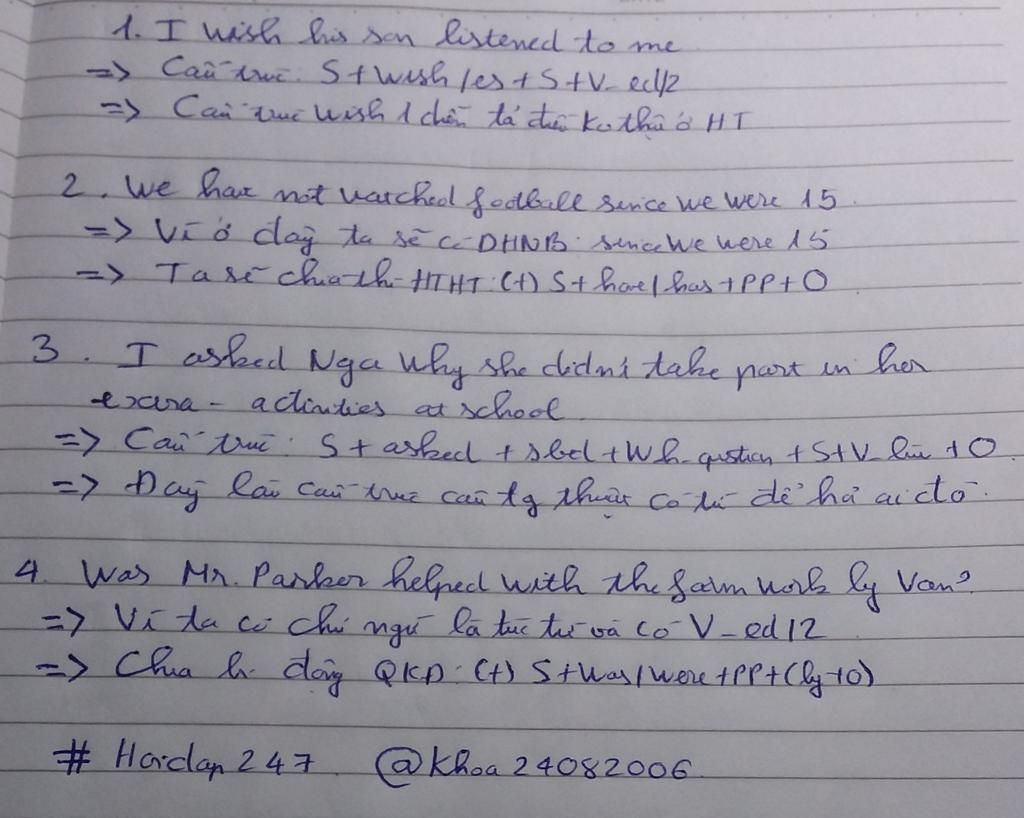 1. I wish his son listened to me
=> Cấu trúc: S + wish/es + S + V_ed/2
=> Cấu trúc wish 1 diễn tả điều ko thật ở HT
2. We have not watched football since we were 15.
=> Vì ở đây ta sẽ có DHNB: since we were 15
=> Ta sẽ chia thì HTHT: (+) S + have/has + PP + O
3. I asked Nga why she didn't take part in her
extra - activities at school.
=> Cấu trúc: S + asked + sbd + Wh-question + S + V_lùi + O.
=> Đây là cấu trúc câu tg thuật có từ để hỏi ai đó.
4. Was Mr. Parker helped with the farm work by Van?
=> Vì ta có chủ ngữ là túc từ và có V_ed/2
=> Chia bị động QKĐ: (+) S + was/were + PP + (by + O)
# Hoidap247. @Khoa24082006.